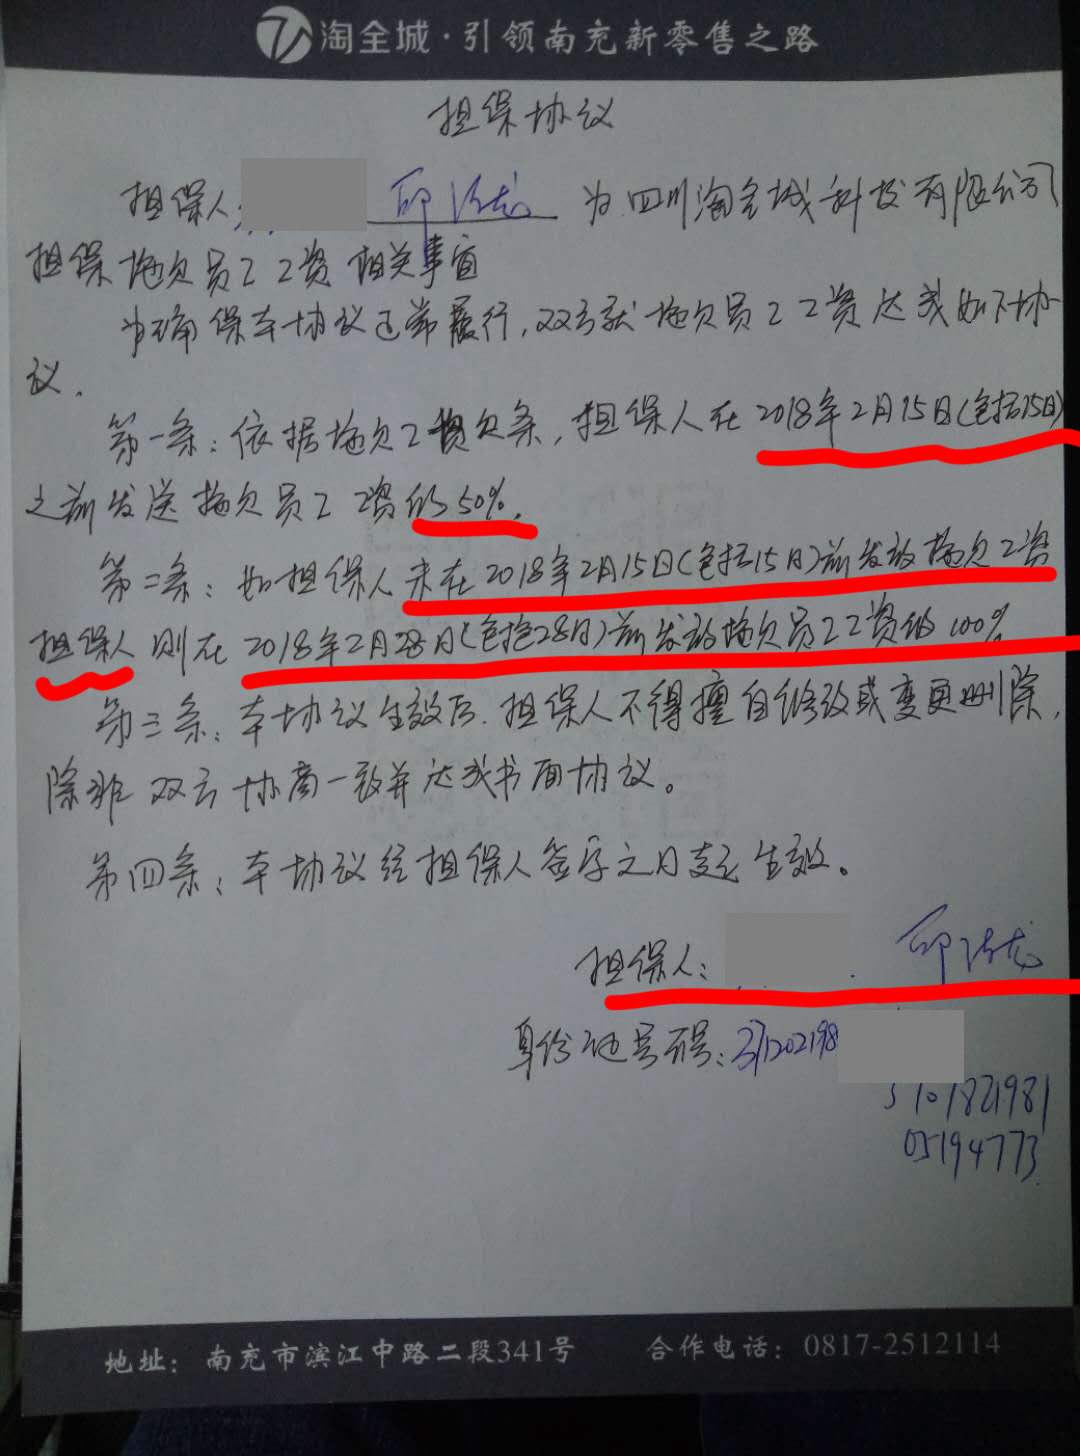 淘全城·引领南充新零售之路
担保协议
担保人 邱 为四川淘全城科技有限公司
担保拖欠员工工资相关事宜
为确保本协议正常履行,双方就拖欠员工工资达成如下协
议.
第一条:依据拖欠工资欠条,担保人在2018年2月15日(包括15日)
之前发送拖欠员工工资的50%.
第二条:如担保人未在2018年2月15日(包括15日)前发放拖欠工资
担保人则在2018年2月28日(包括28日)前发放拖欠员工工资的100%
第三条:本协议生效后.担保人不得擅自修改或变更删除,
除非双方协商一致并达成书面协议。
第四条:本协议经担保人签字之日起生效。
担保人: 邱
身份证号码:
05194773
地址:南充市滨江中路二段341号 合作电话:0817-2512114